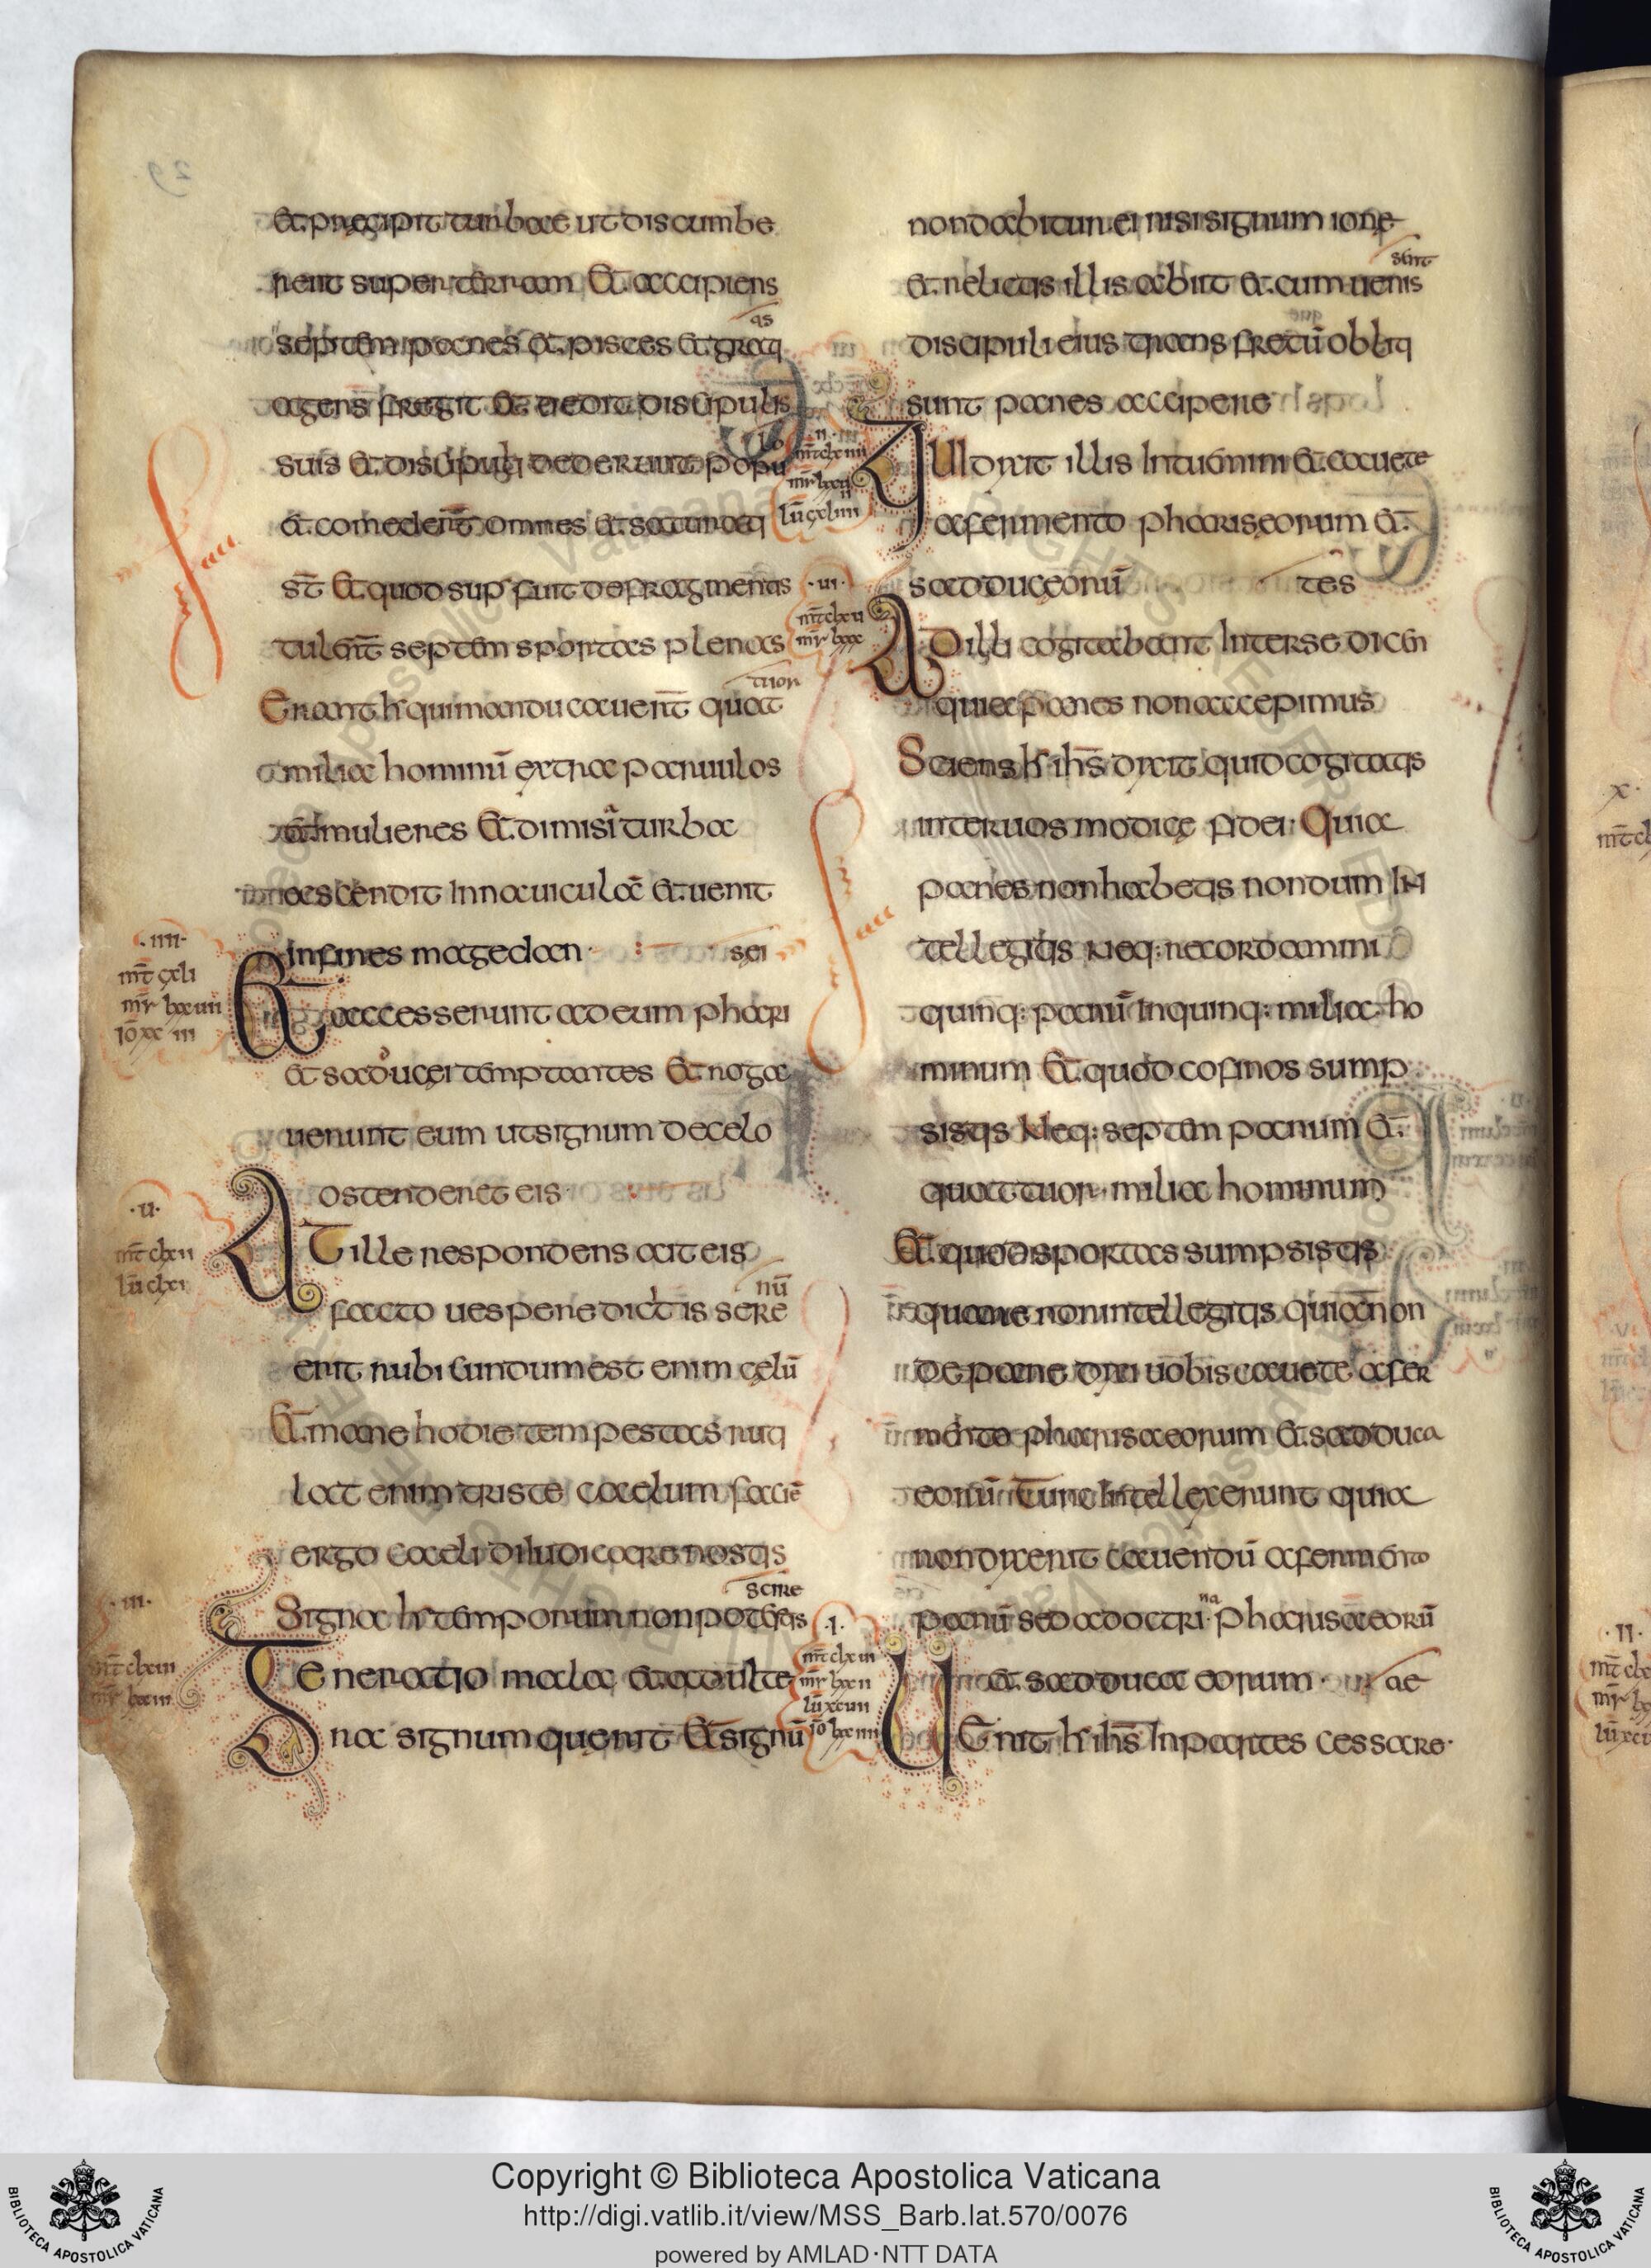 et precipit turbae ut discumbe
rent super terram Et accipiens
as
septem panes et pisces et grati
agens fregit et dedit discipulis
suis et discipuli dederunt popu
lo
et comedert̄ omnes et saturati
st̄ Et quod sup fuit de fragmentis
tulert̄ septem sportas plenas
tuor
Erant hr qui manducauert̄ quat
milia hominū extra paruulos
et mulieres Et dimisa turba
ascendit in nauiculā et uenit
in fines magedan
sei
Et accesserunt ad eum phari
et saducei temptantes Et roga
uerunt eum ut signum de celo
ostenderet eis
At ille respondens ait eis
nū
facto uespere dicitis sere
erit rubicundum est enim celū
Et mane hodie tempestas ruti
lat enim triste caelum faciē
ergo caeli diiudicare nostis
scire
Signa hr temporum non potestis
Generatio mala et adulte
ra signum querit Et signū
·IIII·
mt̄ clxi
mr̄ lxxuii
iō xx iii
·u·
mt̄ clxii
lū clxi
·III·
mt̄ clxiii
mr̄ lxxiii
non dabitur ei nisi signum ione
sent
et relictis illis abiit et cum uenis
discipuli eius trans fretū obliti
sunt panes accipere
Qui dixit illis Intuemini et cauete
a fermento phariseorum et
sadduceorū
tes
At illi cogitabant Inter se dicen
quia panes non accepimus
Sciens hr ihs̄ dixit quid cogitatis
inter uos modice fidei Quia
panes non habetis nondum In
tellegitis Neq: recordamini
quinq: panū In quinq: milia ho
minum Et quod cofinos sump
sistis Neq: septem panum et
quattuor milia hominum
Et quod sportas sumpsistis
quare non intellegitis quia non
de pane dixi uobis cauete a fer
mento pharisaeorum et sadduca
eorū Tunc Intellexerunt quia
non dixerit cauendū a fermento
na
panū sed a doctri pharisaeorū
et sadducaeorum
ae
Uenit hr ihs̄ In partes cessare
·II·
mt̄ clxiiii
lū cxliiii
·III·
mt̄ clxu
mr̄ lxxx
·I·
mt̄ clxui
mr̄ lxxxii
lū xciiii
iō lxxiiii
Copyright © Biblioteca Apostolica Vaticana
http://digi.vatlib.it/view/MSS_Barb.lat.570/0076
powered by AMLAD·NTT DATA
BIBLIOTECA APOSTOLICA VATICANA
BIBLIOTECA APOSTOLICA VATICANA